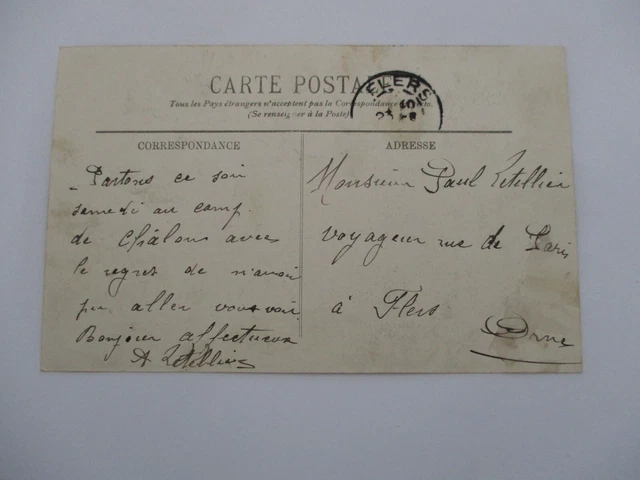 CARTE POSTA
FLERS
Tous les Pays étrangers n'acceptent pas la Correspondance
(Se renseigner à la Poste)
CORRESPONDANCE
Partons ce soir
samedi au camp
de Châlons avec
le regret de n'avoir
pu aller vous voir
Bonjour affectueux
A Letellier
ADRESSE
Monsieur Paul Letellier
voyageur rue de Paris
à Flers
Orne